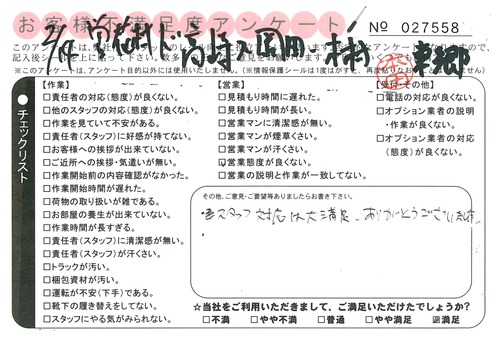 お客様不満足度アンケート
№ 027558
【作業】
□責任者の対応(態度)が良くない。
□他のスタッフの対応(態度)が良くない。
□作業を見ていて不安がある。
□責任者(スタッフ)に好感が持てない。
□お客様への挨拶が出来ていない。
□ご近所への挨拶・気遣いが無い。
□作業開始前の内容確認がなかった。
□作業開始時間が遅れた。
□荷物の取り扱いが雑である。
□お部屋の養生が出来ていない。
□作業時間が長すぎる。
□責任者(スタッフ)に清潔感が無い。
□責任者(スタッフ)が汗くさい。
□トラックが汚い。
□梱包資材が汚い。
□運転が不安(下手)である。
□靴下の履き替えをしてない。
□スタッフにやる気がみられない。
【営業】
□見積もり時間に遅れた。
□見積もり時間が長い。
□営業マンに清潔感が無い。
□営業マンが煙草くさい。
□営業マンが汗くさい。
□営業態度が良くない。
□営業の説明と作業が一致してない。
□電話の対応が良くない。
□オプション業者の説明
・作業が良くない。
□オプション業者の対応
(態度)が良くない。
チェックリスト
その他、ご意見・ご要望等ありましたらお書き下さい。
スタッフ対応は大満足。ありがとうございます。
☆当社をご利用いただきまして、ご満足いただけたでしょうか?
□不満 □やや不満 □普通 □やや満足 ☑満足